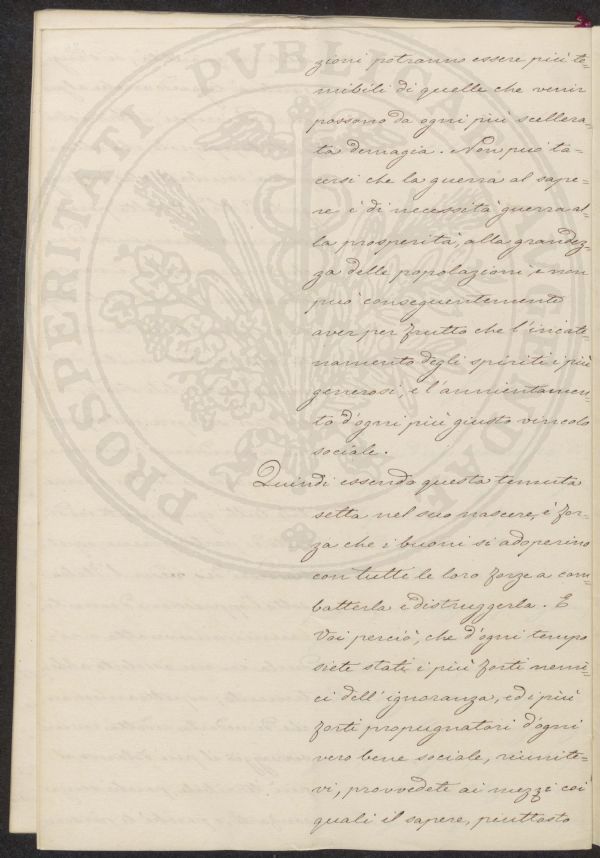 zioni potranno essere più te-
mibili di quelle che venir
possono da ogni più scellera-
ta demagia. Non può ta-
cersi che la guerra al sape-
re è di necessità guerra al-
la prosperità, alla grandez-
za delle popolazioni, e non
può conseguentemente
aver per frutto che l'incate-
namento degli spiriti i più
generosi, e l'annientamen-
to d'ogni più giusto vincolo
sociale.
Quindi essendo questa temuta
setta nel suo nascere, è for-
za che i buoni si adoperino
con tutti le loro forze a com-
batterla e distruggerla. E
Voi perciò, che d'ogni tempo
siete stati i più forti nemi-
ci dell'ignoranza, ed i più
forti propugnatori d'ogni
vero bene sociale, riunite-
vi, provvedete ai mezzi coi
quali il sapere, piuttosto
PROSPERITATI PVBLICAE